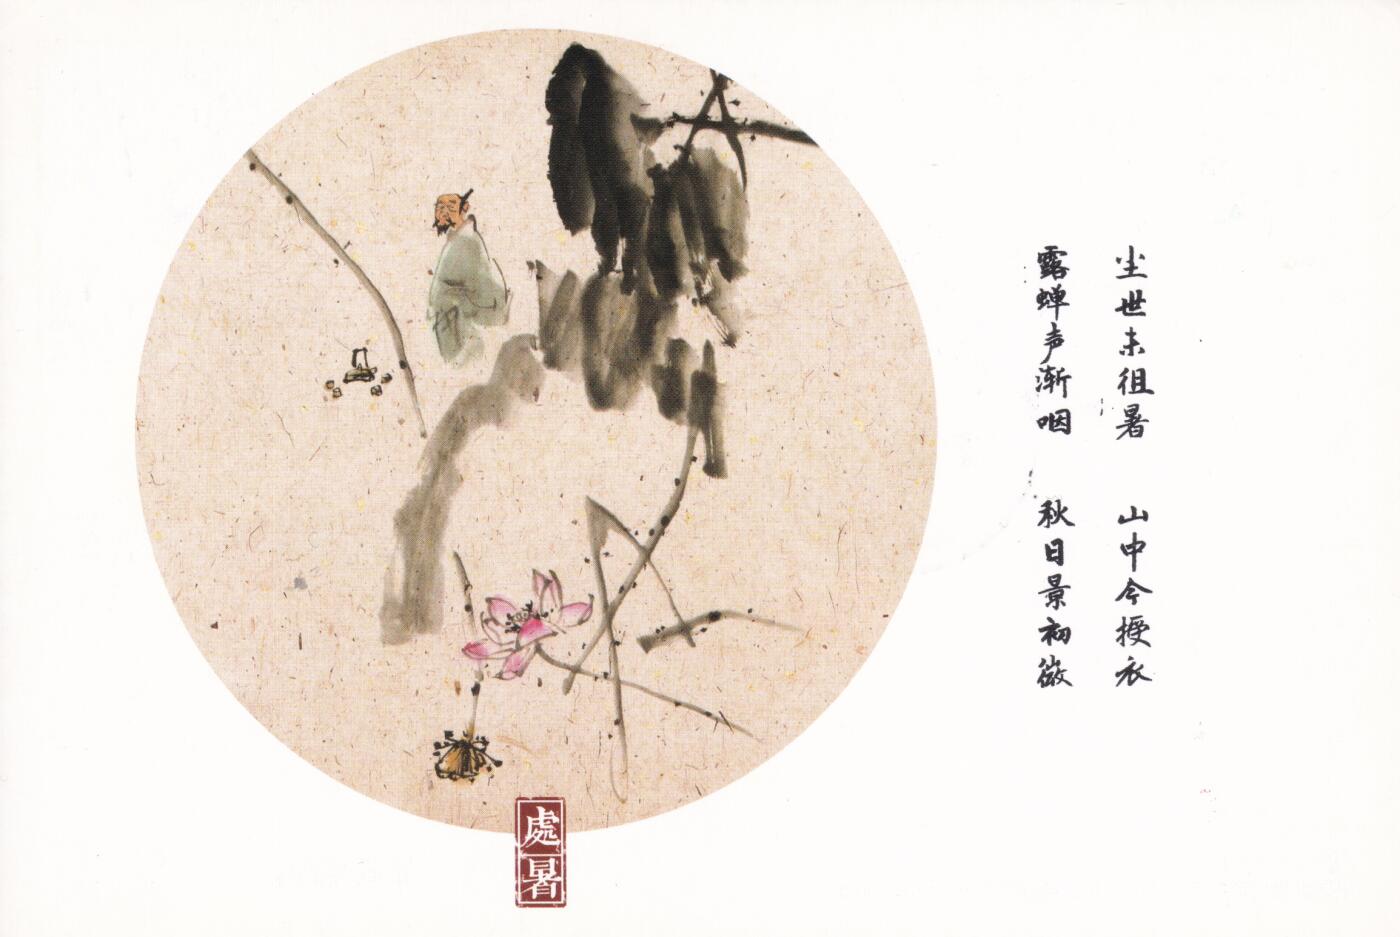 尘世未徂暑 山中今授衣
露蝉声渐咽 秋日景初微
處暑